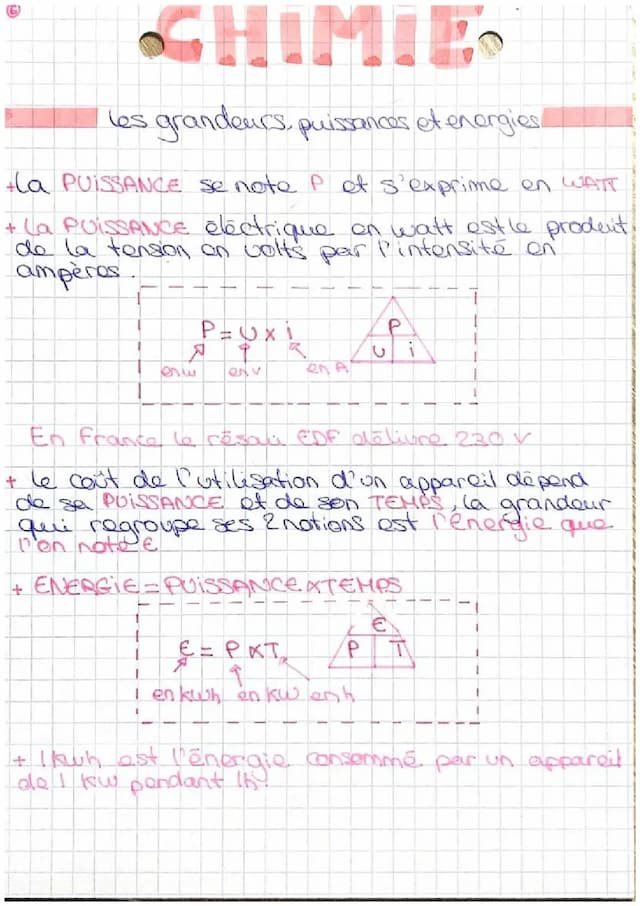 6
CHIMIE
les grandeurs, puissances et energies
+La PUISSANCE se note P et s'exprime en WATT
+ La PUISSANCE éléctrique en watt est le produit
de la tension en volts par l'intensité en
ampères.
P = U x i
P
U i
en w en v en A
En France le résau EDF délivre 230 V
+ le coût de l'utilisation d'un appareil dépend
de sa PUISSANCE et de son TEMPS, la grandeur
qui regroupe ses 2 notions est l'énergie que
l'on note E
+ ENERGIE = PUISSANCE x TEMPS
E
E = P x T
P T
en kwh en kw en h
+ 1 kwh est l'énergie consommé par un appareil
de 1 kw pendant 1h.